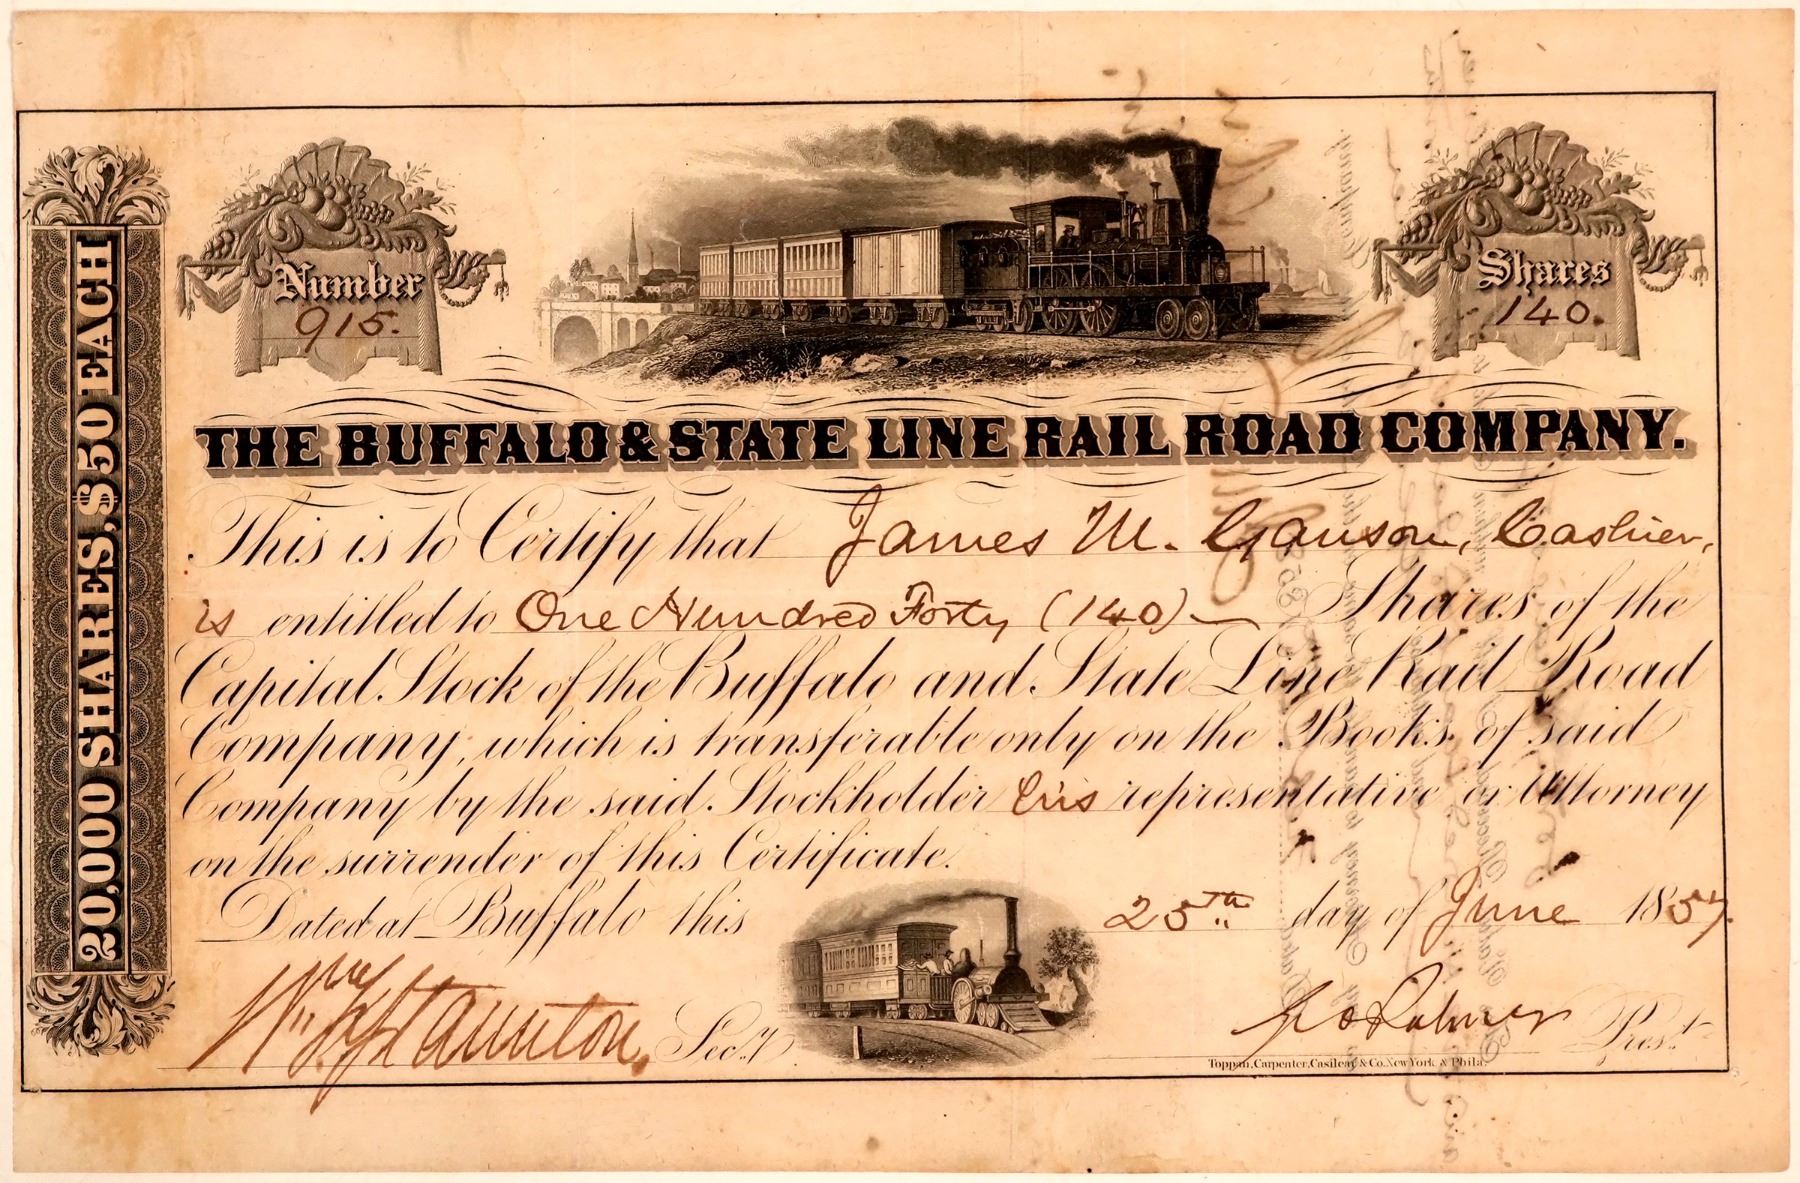 20,000 SHARES, $50 EACH
Number
915.
Shares
140.
THE BUFFALO & STATE LINE RAIL ROAD COMPANY.
This is to Certify that James M. Ganson, Cashier,
is entitled to One Hundred Forty (140) Shares of the
Capital Stock of the Buffalo and State Line Rail Road
Company, which is transferable only on the Books of said
Company by the said Stockholder his representative or Attorney
on the surrender of this Certificate.
Dated at Buffalo this 25th day of June 1857.
Staunton, Secy
Palmer Prest.
Toppan, Carpenter, Casilear & Co. New York & Phila.